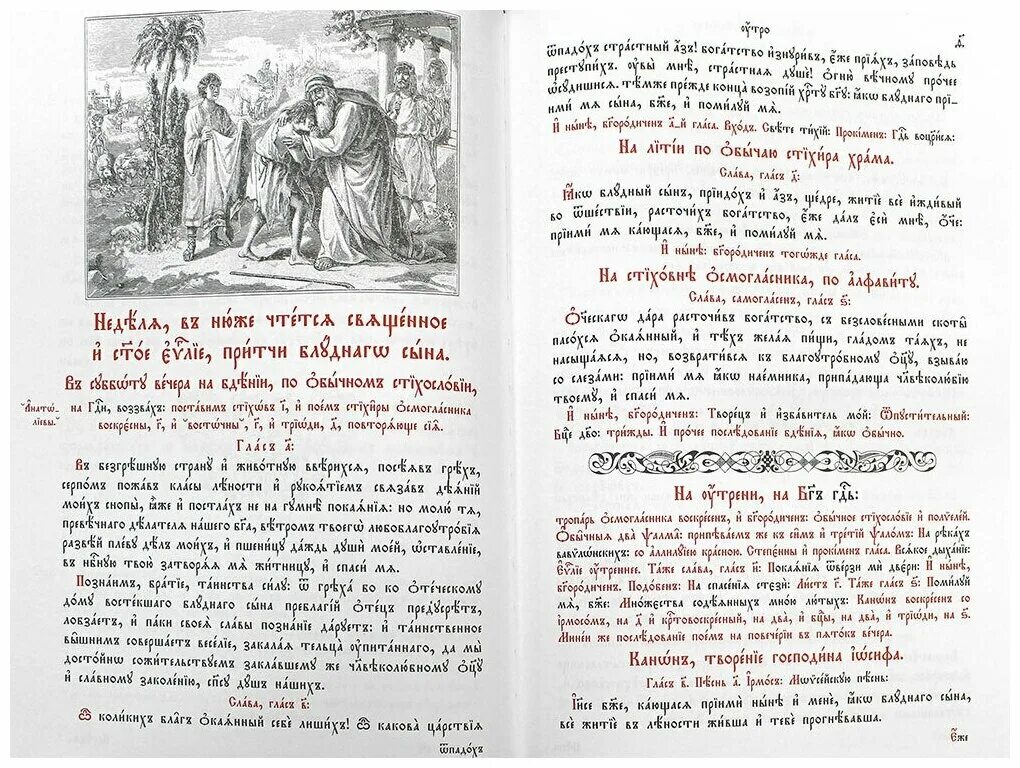 Недѣ́лѧ, въ ню́же чте́тсѧ свѧще́нное
и҆ ст҃о́е є҆ѵⷢ҇лїе, при́тчи блꙋ́днагѡ сы́на.
Въ сꙋббѡ́тꙋ ве́чера на бдѣ́нїи, по ѻ҆бы́чномъ стїхосло́вїи,
"А҆натѡ-
лїевы."
на Гдⷭ҇и, воззва́хъ: поста́вимъ стїхѡ́въ і҃, и҆ пое́мъ стїхи̑ры ѻ҆смогла́сника
воскрє́сны, г҃, и҆ "восто́чны", г҃, и҆ трїѡ́ди, д҃, повторѧ́юще сїѧ̑.
Гла́съ а҃:
Въ безгрѣ́шнꙋю странꙋ̀ и҆ живо́тнꙋю ввѣ́рихсѧ, посѣ́ѧвъ грѣ́хъ,
серпо́мъ пожа́въ кла́сы лѣ́ности и҆ рꙋкоѧ́тїемъ свѧза́въ дѣѧ́нїй
мои́хъ снопы̀, ꙗ҆̀же и҆ постла́хъ не на гꙋмнѣ̀ покаѧ́нїѧ: но молю́ тѧ,
превѣ́чнаго дѣ́лателѧ на́шего бг҃а, вѣ́тромъ твоегѡ̀ любоблагоꙋтро́бїѧ
развѣ́й пле́вꙋ дѣ́лъ мои́хъ, и҆ пшени́цꙋ да́ждь дꙋшѝ мое́й, ѡ҆ставле́нїе,
въ нбⷭ҇нꙋю твою̀ затворѧ́ѧ мѧ̀ жи́тницꙋ, и҆ спасѝ мѧ̀.
Позна́имъ, бра́тїе, та́инства си́лꙋ: ѿ грѣха́ бо ко ѻ҆те́ческомꙋ
до́мꙋ восте́кшаго блꙋ́днаго сы́на пребл҃гі́й ѻ҆те́цъ предꙋсрѣ́тъ,
лобза́етъ, и҆ па́ки своеѧ̀ сла́вы позна́нїе да́рꙋетъ: и҆ та́инственное
вы̑шнимъ соверша́етъ весе́лїе, закала́ѧ тельца̀ ᲂу҆пита́ннаго, да мы̀
досто́йнѡ сожи́тельствꙋемъ закла́вшемꙋ же чл҃вѣколю́бномꙋ ѻ҆ц҃ꙋ̀
и҆ сла́вномꙋ заколе́нїю, сп҃сꙋ дꙋ́шъ на́шихъ.
Сла́ва, гла́съ в҃:
Ѽ коли́кихъ бла̑гъ ѻ҆каѧ́нный себѐ лиши́хъ! Ѽ какова̀ ца́рствїѧ
ѿпадо́хъ
ᲂу҆́тро
д҃.
ѿпадо́хъ стра́стный а҆́зъ! бога́тство и҆знꙋри́въ, є҆́же прїѧ́хъ, за́повѣдь
престꙋпи́хъ. ᲂу҆вы̀ мнѣ̀, стра́стнаѧ дꙋшѐ! ѻ҆гню̀ вѣ́чномꙋ про́чее
ѡ҆сꙋди́шисѧ. тѣ́мже пре́жде конца̀ возопі́й хрⷭ҇тꙋ̀ бг҃ꙋ: ꙗ҆́кѡ блꙋ́днаго прї-
имѝ мѧ̀ сы́на, бж҃е, и҆ поми́лꙋй мѧ̀.
И҆ ны́нѣ, бг҃оро́диченъ а҃-й гла́са. Вхо́дъ. Свѣ́те ти́хїй: Проки́менъ: Гдⷭ҇ь воцр҃и́сѧ:
На лїті́и по ѻ҆бы́чаю стїхи́ра хра́ма.
Сла́ва, гла́съ д҃:
Ꙗ҆́кѡ блꙋ́дный сы́нъ, прїидо́хъ и҆ а҆́зъ, ще́дре, житїѐ всѐ и҆жди́вый
во ѿше́ствїи, расточи́хъ бога́тство, є҆́же да́лъ є҆сѝ мнѣ̀, ѻ҆́ч҃е:
прїимѝ мѧ̀ ка́ющасѧ, бж҃е, и҆ поми́лꙋй мѧ̀.
И҆ ны́нѣ: бг҃оро́диченъ тогѡ́жде гла́са.
На стїхо́внѣ ѻ҆смогла́сника, по а҆лфави́тꙋ.
Сла́ва, самогла́сенъ, гла́съ ѕ҃:
Ѻ҆́ч҃ескагѡ да́ра расточи́въ бога́тство, съ безслове́сными скоты̀
пасо́хсѧ ѻ҆каѧ́нный, и҆ тѣ́хъ жела́ѧ пи́щи, гла́домъ та́ѧхъ, не
насыща́ѧсѧ, но, возврати́всѧ къ благоꙋтро́бномꙋ ѻ҆ц҃ꙋ̀, взыва́ю
со слеза́ми: прїимѝ мѧ̀ ꙗ҆́кѡ нае́мника, припа́дающа чл҃вѣколю́бїю
твоемꙋ̀, и҆ спасѝ мѧ̀.
И҆ ны́нѣ, бг҃оро́диченъ: Творе́цъ и҆ и҆зба́витель мо́й: Ѿпꙋсти́тельный:
Бцⷣе дв҃о: три́жды. И҆ про́чее послѣ́дованїе бдѣ́нїѧ, ꙗ҆́кѡ ѻ҆бы́чно.
На ᲂу҆́трени, на Бг҃ъ гдⷭ҇ь:
тропа́рь ѻ҆смогла́сника воскре́сенъ, и҆ бг҃оро́диченъ: ѻ҆бы́чное стїхосло́вїе и҆ полѷеле́й.
Ѻ҆бы́чныѧ два̀ ѱалма̑: припѣва́емъ же къ си̑мъ и҆ тре́тїй ѱало́мъ: На рѣка́хъ
вавѷлѡ́нскихъ: со а҆ллилꙋ́їею кра́сною. Степє́нны и҆ проки́менъ гла́са. Всѧ́кое дыха́нїе:
Є҆ѵⷢ҇лїе ᲂу҆́треннее. Та́же сла́ва, гла́съ и҃: Покаѧ́нїѧ ѿве́рзи мѝ двє́ри: И҆ ны́нѣ,
бг҃оро́диченъ. Подо́бенъ: На спасе́нїѧ стезѝ: Ли́стъ г҃. Та́же гла́съ ѕ҃: Поми́лꙋй
мѧ̀, бж҃е: Мно́жєства содѣ́ѧнныхъ мно́ю лю́тыхъ: Канѡ́нъ воскре́сенъ со
і҆рмосо́мъ, на д҃ и҆ крⷭ҇товоскре́сный, на два̀, и҆ бцⷣы, на два̀, и҆ трїѡ́ди, на ѕ҃.
Мине́и же послѣ́дованїе пое́мъ на повече́рїи въ пѧто́къ ве́чера.
Канѡ́нъ, творе́нїе господи́на і҆ѡ́сифа.
Гла́съ в҃. Пѣ́снь а҃. І҆рмо́съ: Мѡѷсе́йскꙋю пѣ́снь:
І҆и҃се бж҃е, ка́ющасѧ прїимѝ ны́нѣ и҆ менѐ, ꙗ҆́кѡ блꙋ́днаго сы́на,
всѐ житїѐ въ лѣ́ности жи́вша и҆ тебѐ прогнѣ́вавша.
Є҆́же